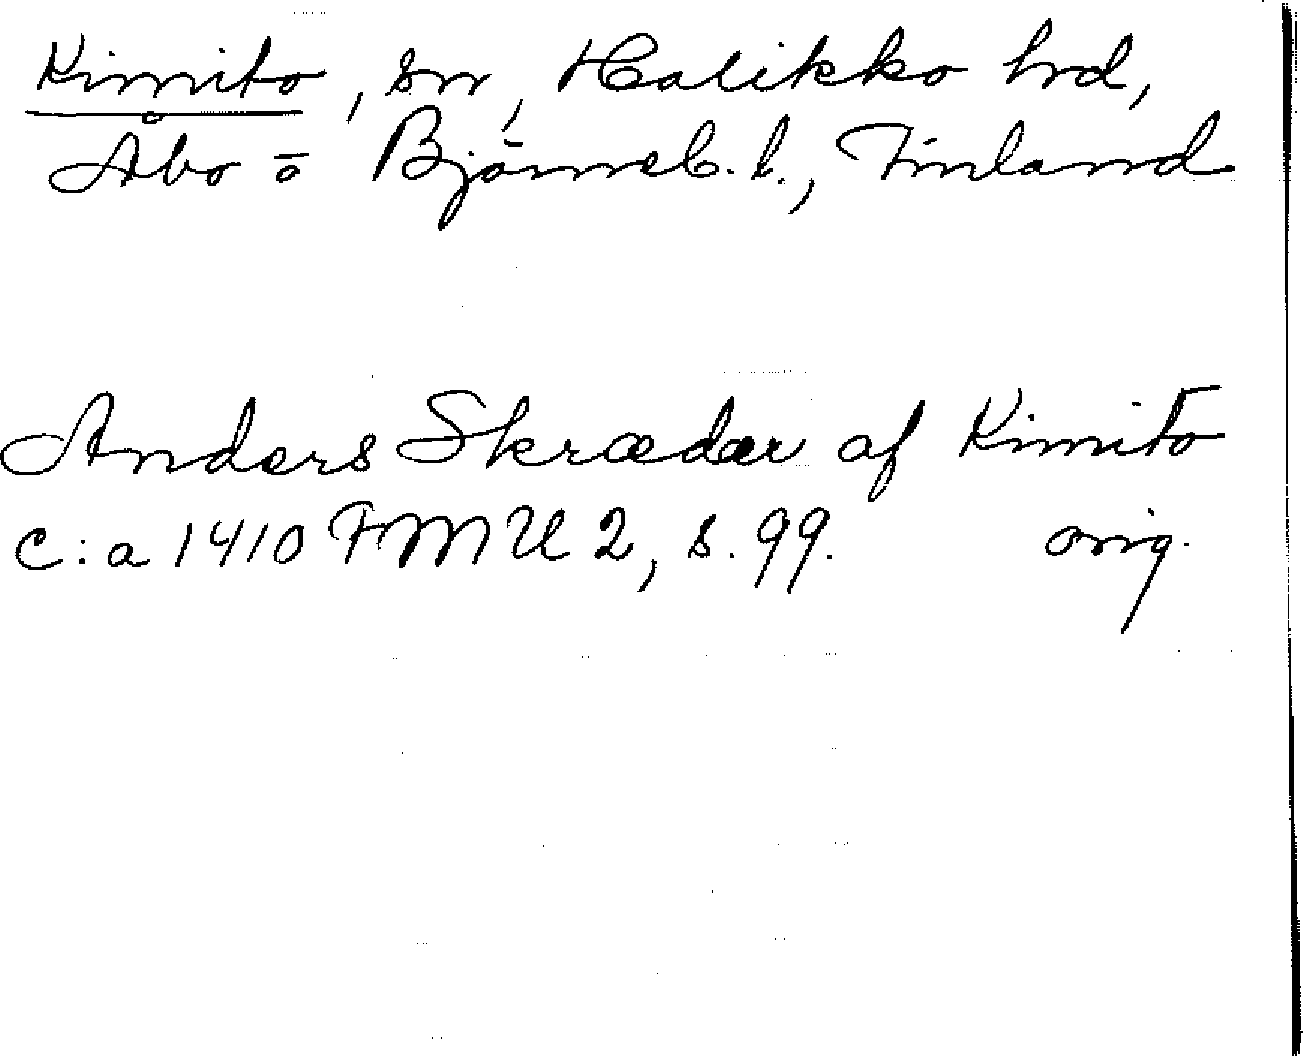 Kimito, sn, Halikko hrd,
Åbo o Björneb. l., Finland
Anders Skrædær af Kimito
c:a 1410 FMU 2, s. 99. orig.